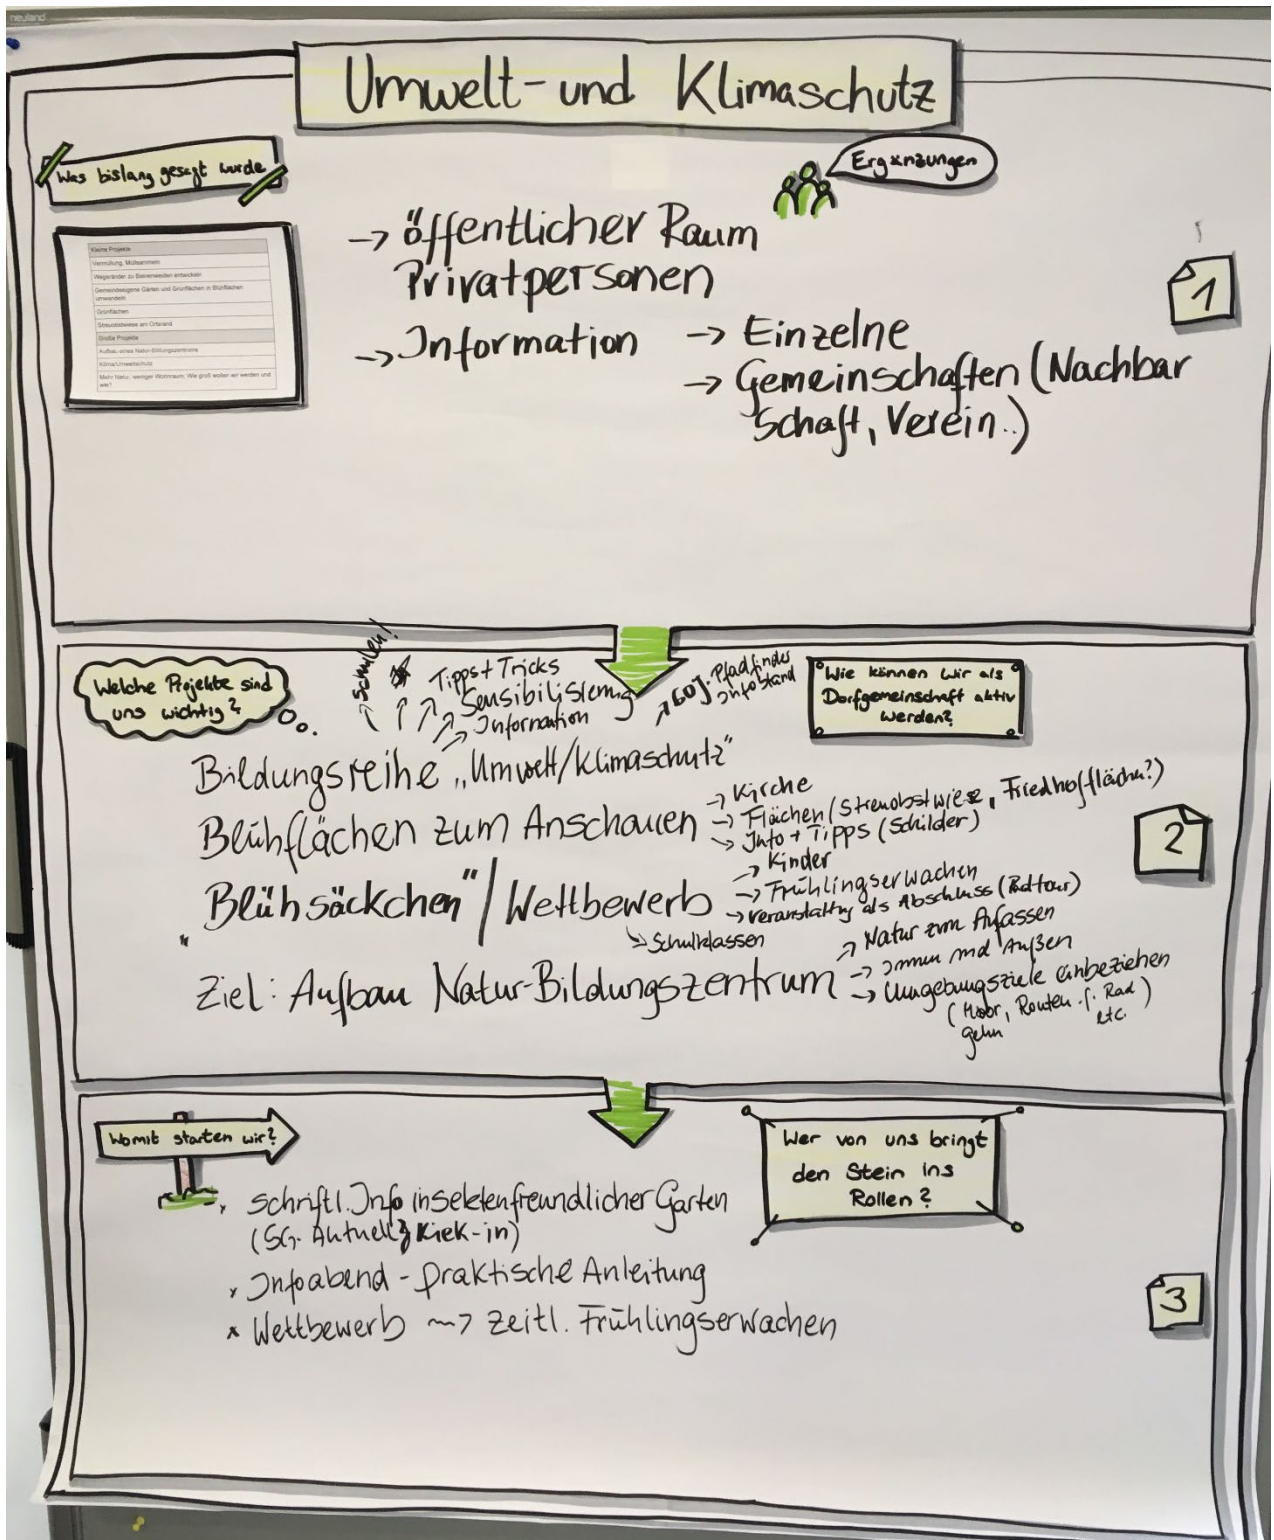 neuland
Umwelt- und Klimaschutz
Was bislang gesagt wurde
Ergänzungen
Kleine Projekte
Vermüllung, Müllsammeln
Wegeränder zu Bienenweiden entwickeln
Gemeindeeigene Gärten und Grünflächen in Blühflächen
umwandeln
Grünflächen
Streuobstwiese am Ortsrand
Große Projekte
Aufbau eines Natur-Bildungszentrums
Klima/Umweltschutz
Mehr Natur, weniger Wohnraum; Wie groß wollen wir werden und
wie?
→ öffentlicher Raum
Privatpersonen
→ Information → Einzelne
→ Gemeinschaften (Nachbar
schaft, Verein..)
1
Welche Projekte sind
uns wichtig?
→ Schulen!
Tipps + Tricks
Sensibilisierung
Information
→ 60 J. Pfadfinder
Infostand
Wie können wir als
Dorfgemeinschaft aktiv
werden?
Bildungsreihe „Umwelt/Klimaschutz"
Blühflächen zum Anschauen → Kirche
→ Flächen (Streuobstwiese, Friedhoffläche?)
→ Info + Tipps (Schilder)
„Blühsäckchen" / Wettbewerb → Kinder
→ Frühlingserwachen
→ Veranstaltng als Abschluss (Radtour)
→ Schulklassen
2
Ziel: Aufbau Natur-Bildungszentrum → Natur zum Anfassen
→ Innen und Außen
→ Umgebungsziele einbeziehen
(Moor, Routen f. Rad
gehn etc.)
Womit starten wir?
Wer von uns bringt
den Stein ins
Rollen?
x schriftl. Info insektenfreundlicher Garten
(SG. Aktuell, Kiek-in)
x Infoabend - praktische Anleitung
x Wettbewerb ~> zeitl. Frühlingserwachen
3